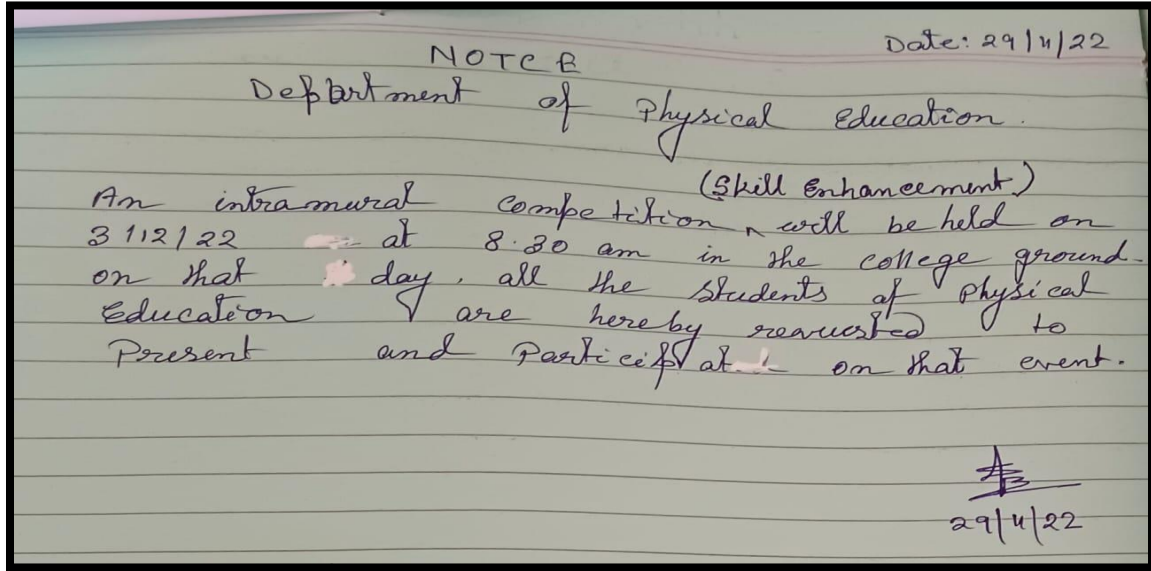 Date: 29/11/22
NOTCE
Department of Physical Education.
(Skill Enhancement)
An intramural competition will be held on
3/12/22 at 8.30 am in the college ground.
on that day, all the students of Physical
Education are hereby requested to
Present and Participat on that event.
29/11/22